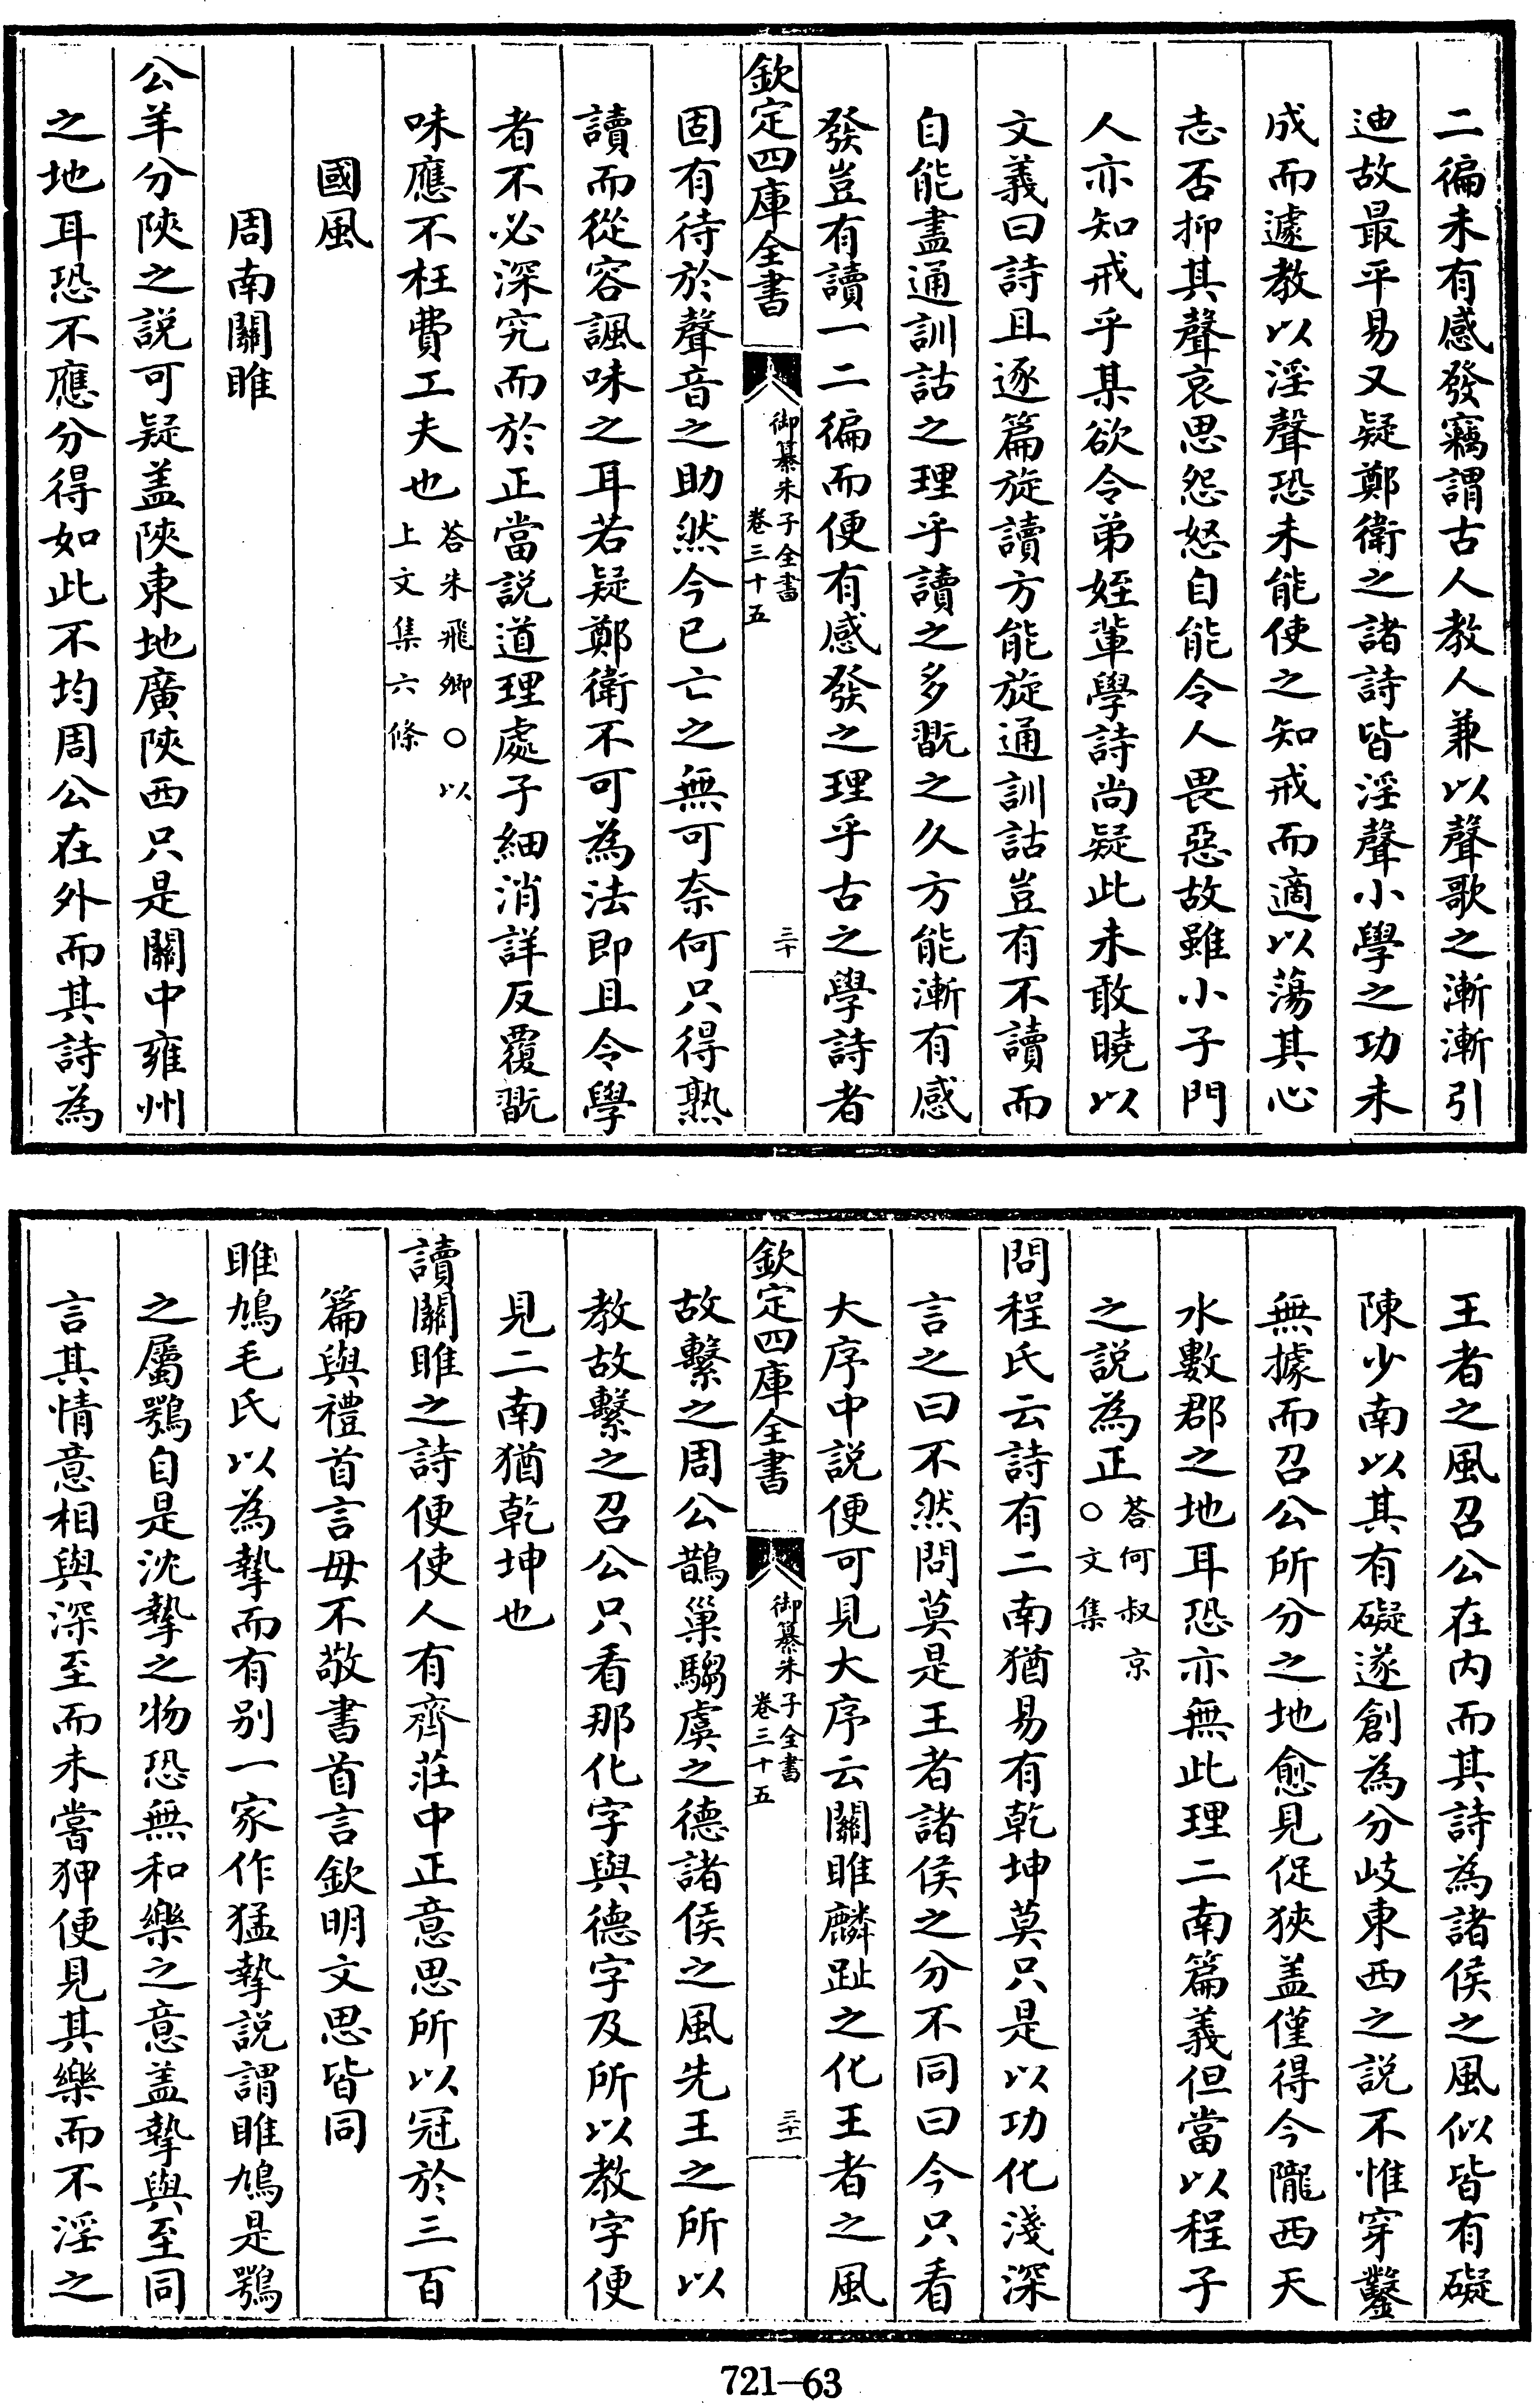 二徧未有感發竊謂古人教人兼以聲歌之漸漸引
迪故最平易又疑鄭衛之諸詩皆淫聲小學之功未
成而遽教以淫聲恐未能使之知戒而適以蕩其心
志否抑其聲哀思怨怒自能令人畏惡故雖小子門
人亦知戒乎某欲令弟姪輩學詩尚疑此未敢曉以
文義曰詩且逐篇旋讀方能旋通訓詁豈有不讀而
自能盡通訓詁之理乎讀之多翫之久方能漸有感
發豈有讀一二徧而便有感發之理乎古之學詩者
欽定四庫全書
御纂朱子全書
卷三十五
三十
固有待於聲音之助然今已亡之無可奈何只得熟
讀而從容諷味之耳若疑鄭衛不可為法即且令學
者不必深究而於正當説道理處子細消詳反覆翫
味應不枉費工夫也答朱飛卿〇以
上文集六條
國風
周南關雎
公羊分陜之説可疑盖陜東地廣陜西只是關中雍州
之地耳恐不應分得如此不均周公在外而其詩為
王者之風召公在内而其詩為諸侯之風似皆有礙
陳少南以其有礙遂創為分岐東西之説不惟穿鑿
無據而召公所分之地愈見促狹盖僅得今隴西天
水數郡之地耳恐亦無此理二南篇義但當以程子
之説為正答何叔京
〇文集
問程氏云詩有二南猶易有乾坤莫只是以功化淺深
言之曰不然問莫是王者諸侯之分不同曰今只看
大序中説便可見大序云關雎麟趾之化王者之風
欽定四庫全書
御纂朱子全書
卷三十五
三十一
故繫之周公鵲巢騶虞之德諸侯之風先王之所以
教故繫之召公只看那化字與德字及所以教字便
見二南猶乾坤也
讀關雎之詩便使人有齊莊中正意思所以冠於三百
篇與禮首言毋不敬書首言欽明文思皆同
雎鳩毛氏以為摯而有别一家作猛摯説謂雎鳩是鶚
之屬鶚自是沈摯之物恐無和樂之意盖摯與至同
言其情意相與深至而未嘗狎便見其樂而不淫之
721-63